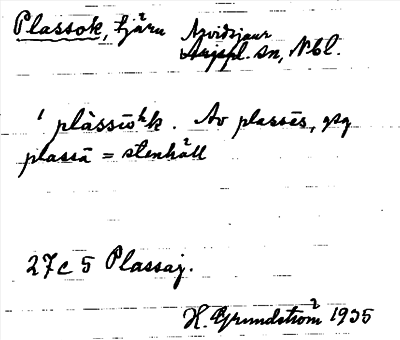 Plassok, tjärn Arvidsjaur
Arjepl. sn, Nbl.
plàssīo̔k. Av plassēs, gsg
plassā = stenhäll
27c 5 Plassaj.
H. Grundström 1935